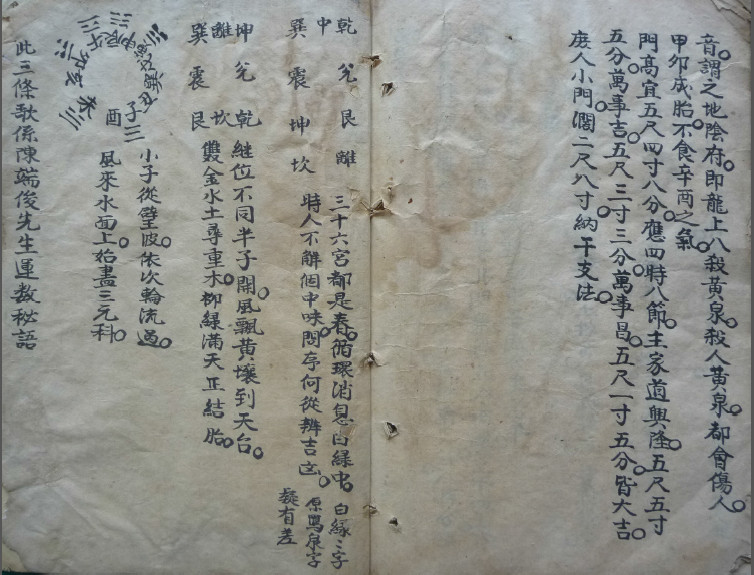 音謂之地陰府。即龍上八殺黃泉。殺人黃泉。都會傷人。
甲卯成胎不食辛酉之氣。
門高宜五尺四寸八分。應四時八節。主家道興隆。五尺五寸
五分。萬事吉。五尺三寸三分。萬事昌。五尺一寸五分。皆大吉。
廢人小門。濶二尺八寸。納干支法。
乾 兌 艮 離
中
巽 震 坤 坎
三十六宮都是春。循環消息白緑中。
時人不解個中味。問存何從辨吉凶。
白緑二字
原寫泉字
疑有差
坤 兌 乾
離 坎
巽 震 艮
継位不同半子開。風飄黃壤到天台。
雙金水土尋重木。柳緑滿天正結胎。
子
酉
小子從璧波。依次輪流過。
風來水面上。始盡三元科。
此三條歌係陳端俊先生運数秘語